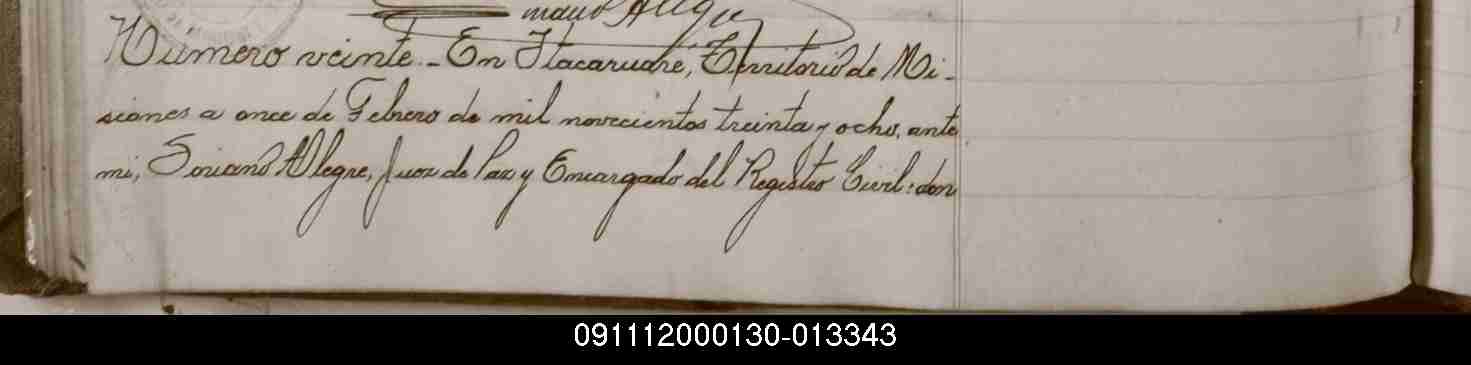 Número veinte.- En Itacaruaré, Territorio de Mi-
siones a once de Febrero de mil novecientos treinta y ocho, ante
mi, Soriano Alegre, Juez de Paz y Encargado del Registro Civil: don
091112000130-013343